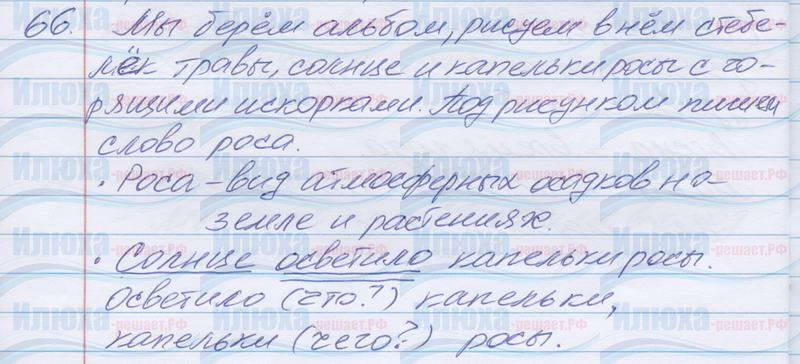 66. Мы берём альбом, рисуем в нём стебе-
лёк травы, солнце и капельки росы с го-
рящими искорками. Под рисунком пишем
слово роса.
• Роса – вид атмосферных осадков на
земле и растениях.
• Солнце осветило капельки росы.
Осветило (что?) капельки,
капельки (чего?) росы.
Илюха-решает.РФ